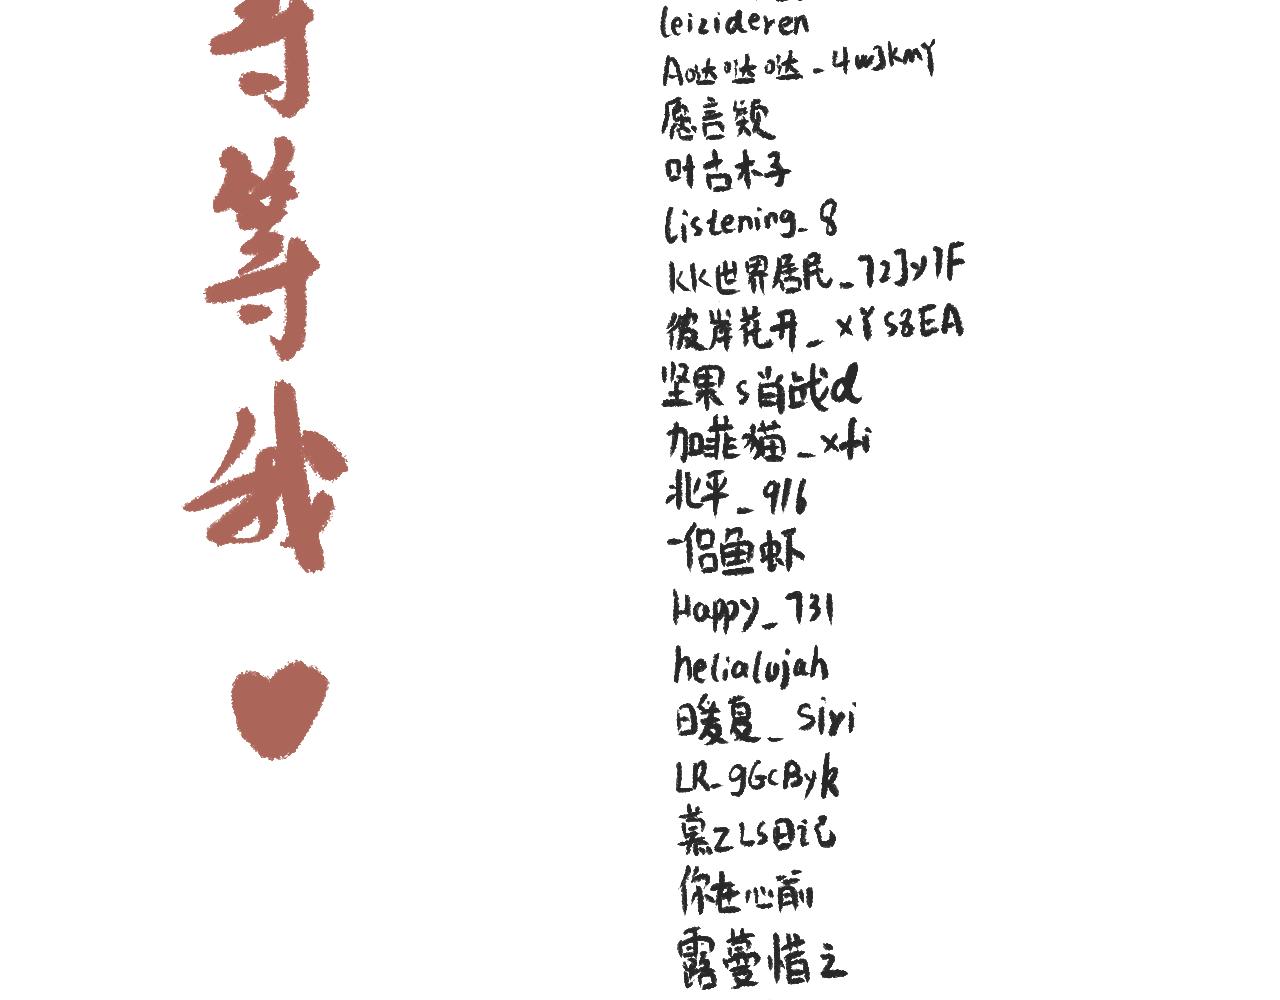 等
等
我
leizideren
A哒哒哒_4w3kmY
愿言颖
叶古木子
listening_8
kk世界居民_72Jy7F
彼岸花开_xYS8EA
坚果s肖战d
加菲猫_xfi
北平_916
一侣鱼虾
Happy_731
helialujah
日暖夏_Siyi
LR_gGcByk
慕ZLS日记
你在心前
露蔓惜之